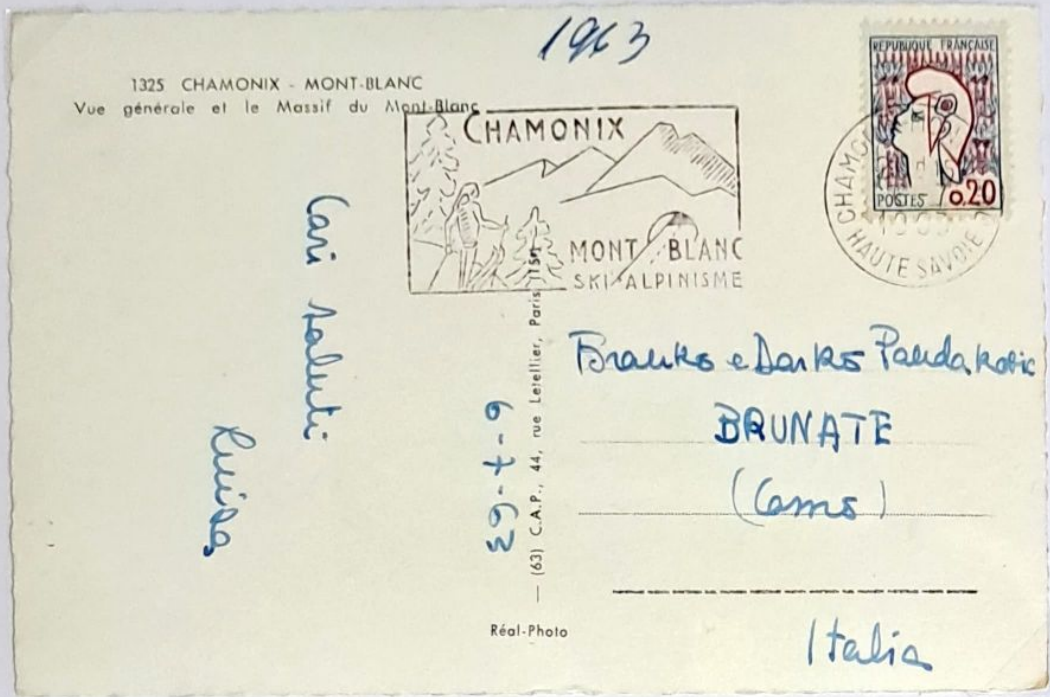 1963
1325 CHAMONIX - MONT-BLANC
Vue générale et le Massif du Mont-Blanc
CHAMONIX
MONT BLANC
SKI-ALPINISME
REPUBLIQUE FRANÇAISE
POSTES 0.20
CHAMO
1963
HAUTE SAVOIE
Cari saluti
Luisa
6-7-63
— (63) C.A.P., 44, rue Letellier, Paris (15e)
Réal-Photo
Branko e Darko Pandakovic
BRUNATE
(Como)
Italia